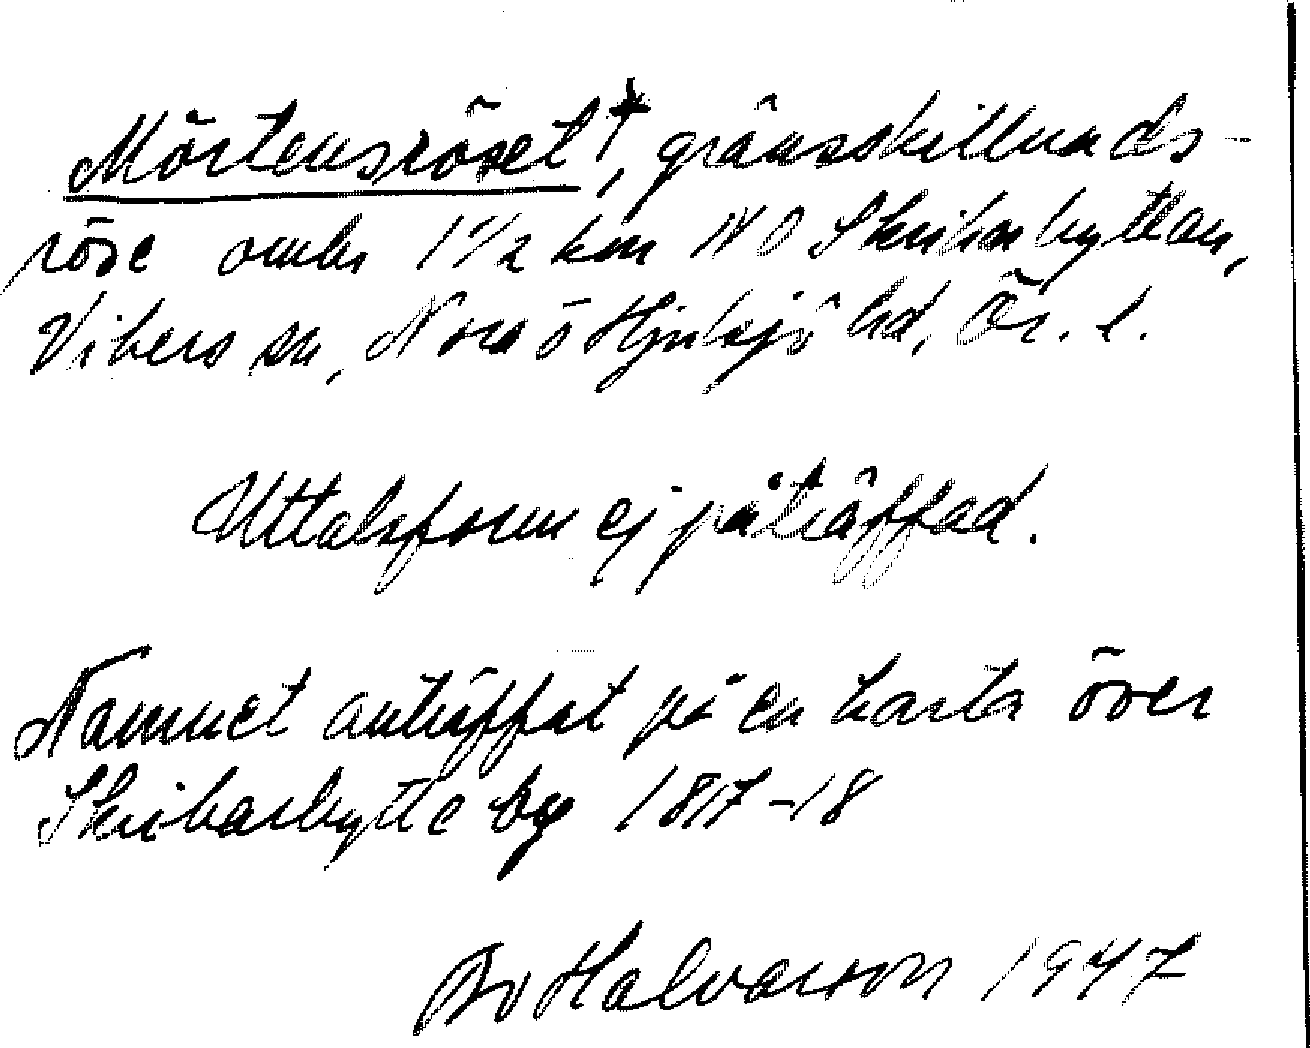 Mörtensröset†, gränsskillnads-
röse omkr 1 1/2 km NO Skrikarhyttan,
Vikers sn, Nora o Hjulsjö hd, Ör. l.
Uttalsform ej påträffad.
Namnet anträffat på en karta över
Skrikarhytte by 1817-18
Bo Halvarson 1947